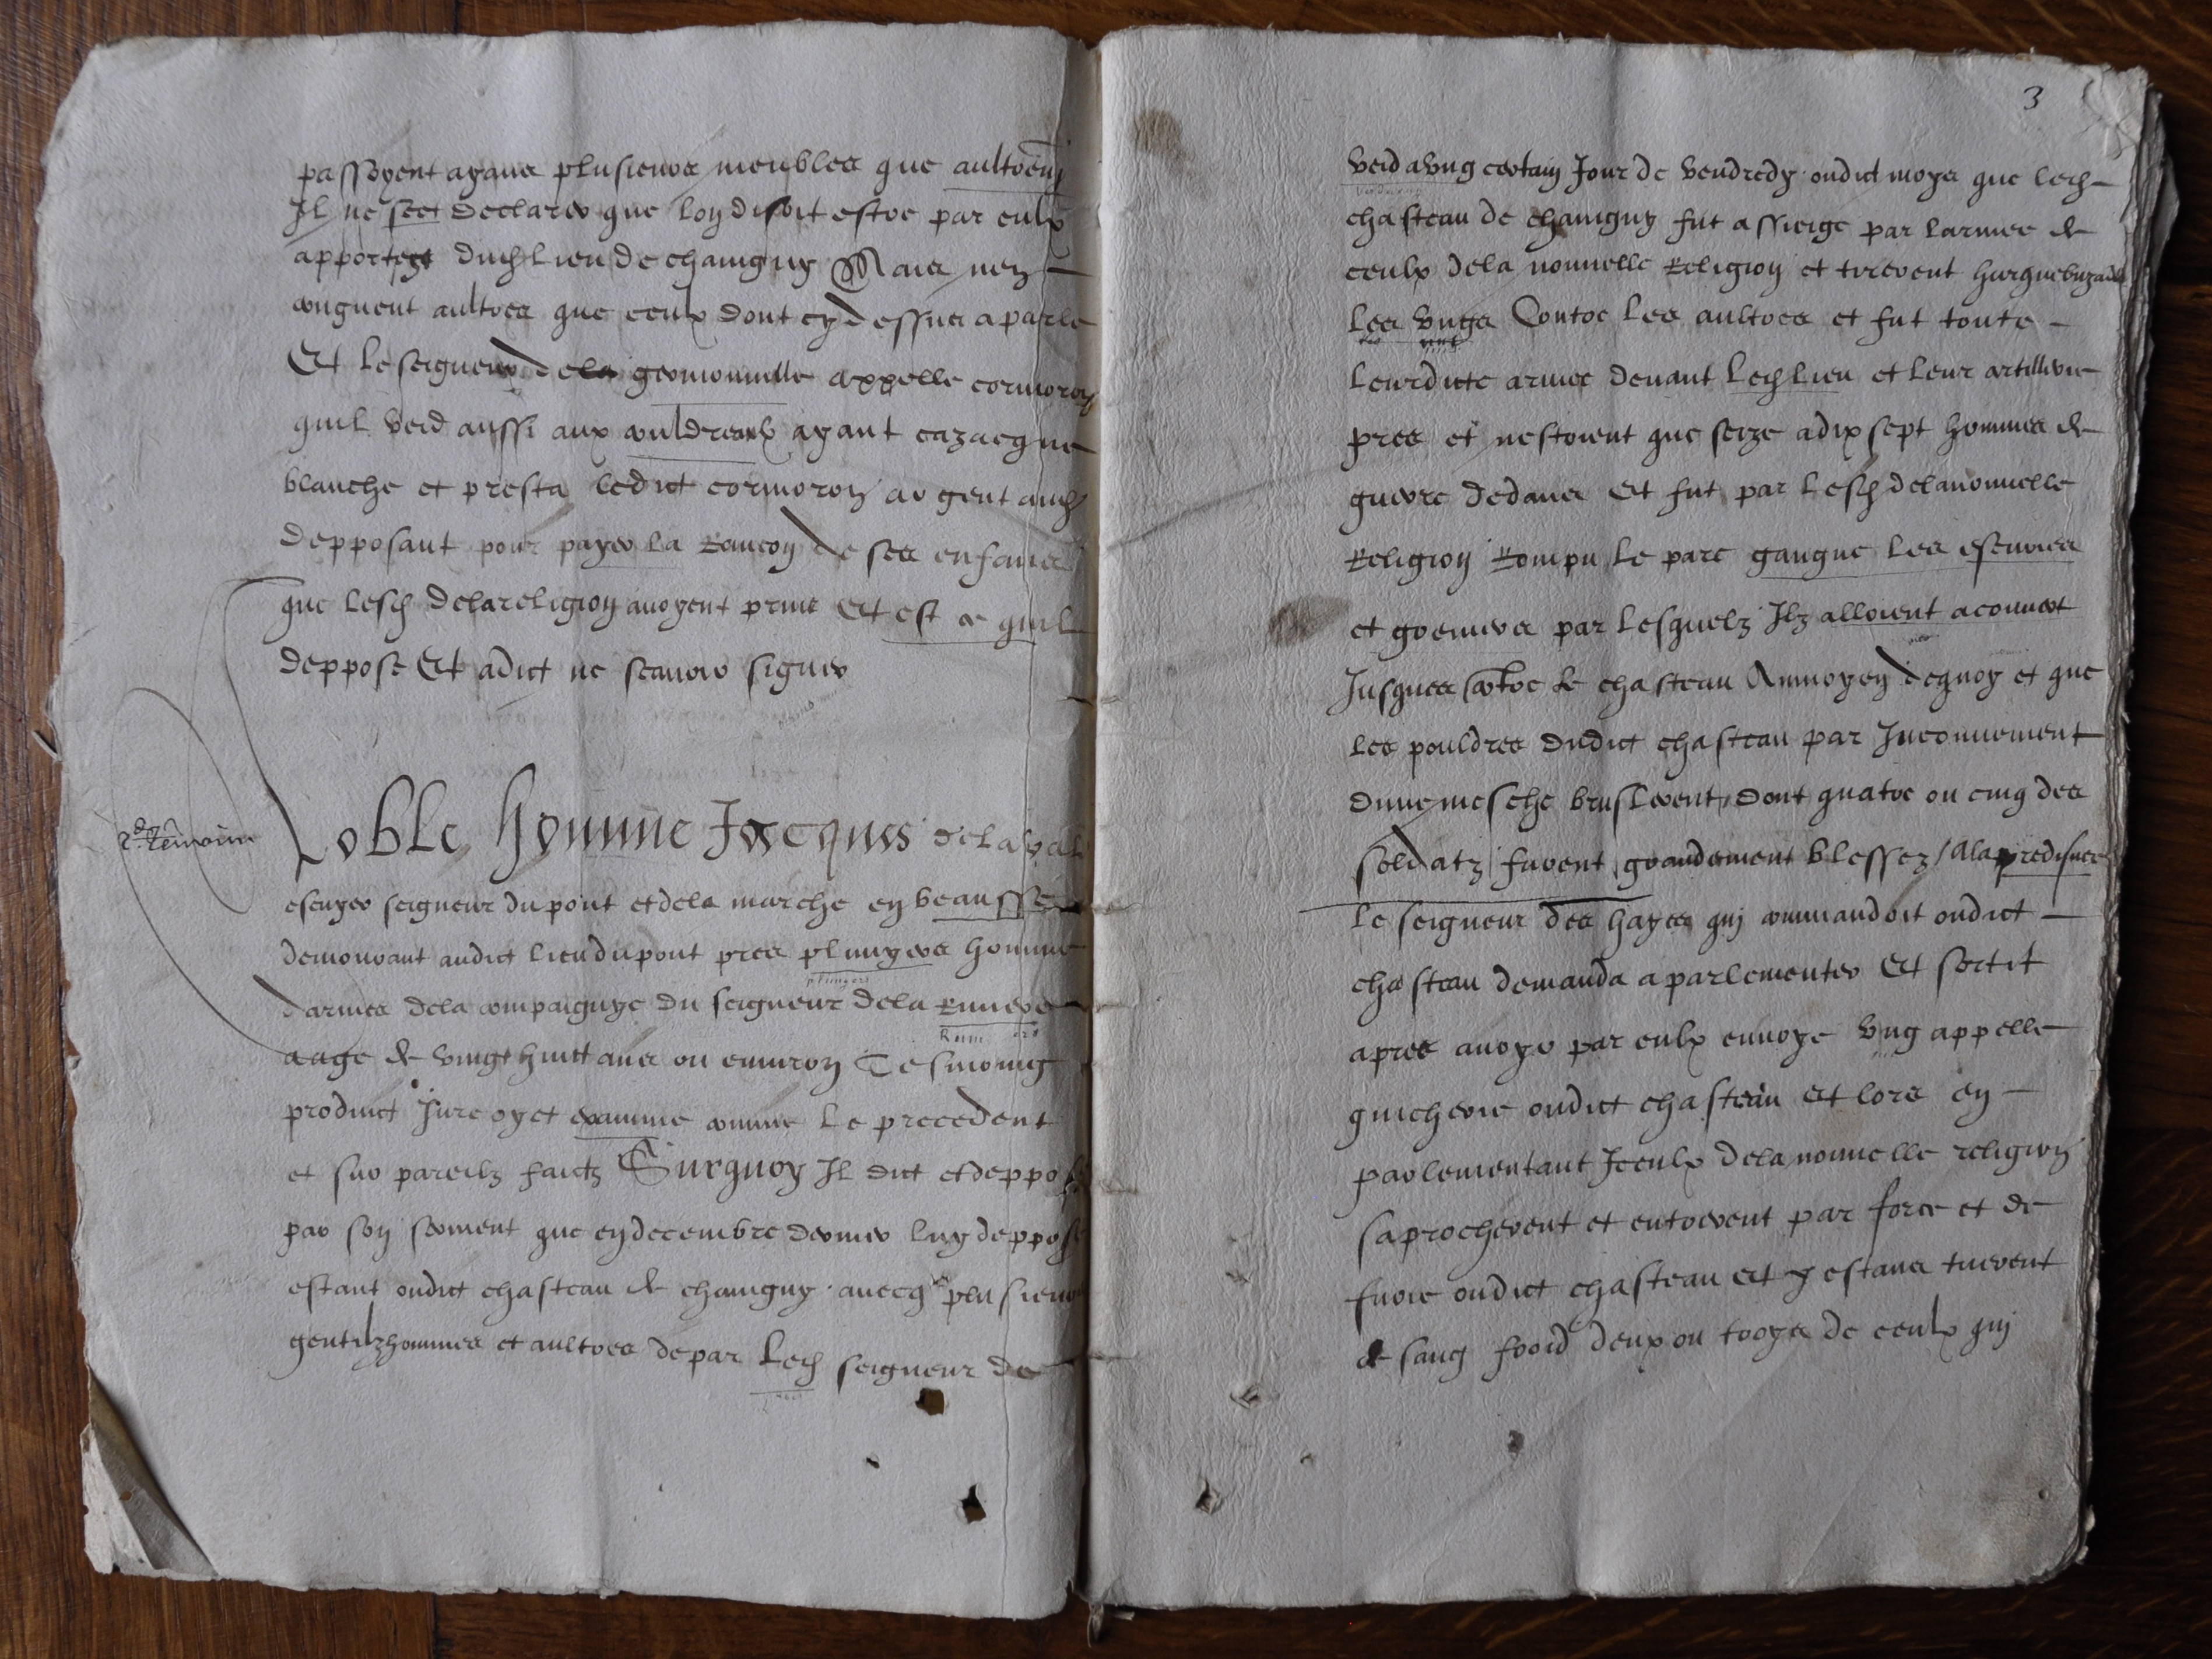 passoyent ayans plusieurs meubles que aultrem̃
Il ne scet declarer que lon disoit estre par eulx
apportez dud lieu de chauigny Mais nen
congneut aultres que ceulx dont cy dessus a parle
Et le seigneur de la gromonnille appelle cormoron
quil veid aussi aux couldreaulx ayant cazacque
blanche et presta ledict cormoron argent aud
depposant pour payer la Rancon de ses enfans
que lesd de la religion auoyent prins Et est ce quil
deppose Et a dict ne scauoir signer
2.d Temoin
Noble homme Jacques de la val
escuyer seigneur du pont et de la marche en beausse
demourant audict lieu du pont pres pluuyers homme
pluuiers
darmes de la compaignye du seigneur de la
aage de vingt huict ans ou enuiron Tesmoing
produict Jure oy et examine comme le precedent
et sur pareilz faictz Surquoy Il dict et deppose
par son serment que en decembre dernier luy deppose
estant oudict chasteau de chauigny auecq plusieurs
gentilzhommes et aultres de par led seigneur de
3
veid a vng certain Jour de vendredy oudict moys que led
chasteau de chauigny fut assiege par larmee de
ceulx de la nouuelle Religion et tirerent harquebuzades
les vngs contre les aultres et fut toute
leurdicte armee deuant led lieu et leur artillerie
pres et nestoient que seize a dix sept hommes de
guerre dedans Et fut par lesd de la nouuelle
Religion Rompu le parc gangne les escuries
et par lesquelz Ilz alloient a couuert
Jusques contre le chasteau Au moyen dequoy et que
les pouldres dudict chasteau par Inconuenient
dune mesche bruslerent dont quatre ou cinq des
soldatz furent grandement blessez / a la predisnee
le seigneur des hayes qui commandoit oudict
chasteau demanda a parlementer Et sortit
apres auoyr par eulx enuoye vng appelle
guicherie oudict chasteau Et lors en
parlementant Iceulx de la nouuelle religion
saprocherent et entrerent par force et de
furie oudict chasteau Et y estans tuerent
de sang froid deux ou troys de ceulx qui